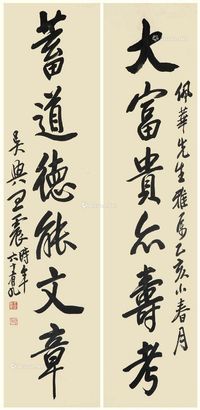 大富貴亦壽考
佩華先生雅屬乙亥小春月
蓄道德能文章
吳興王震時年六十有九